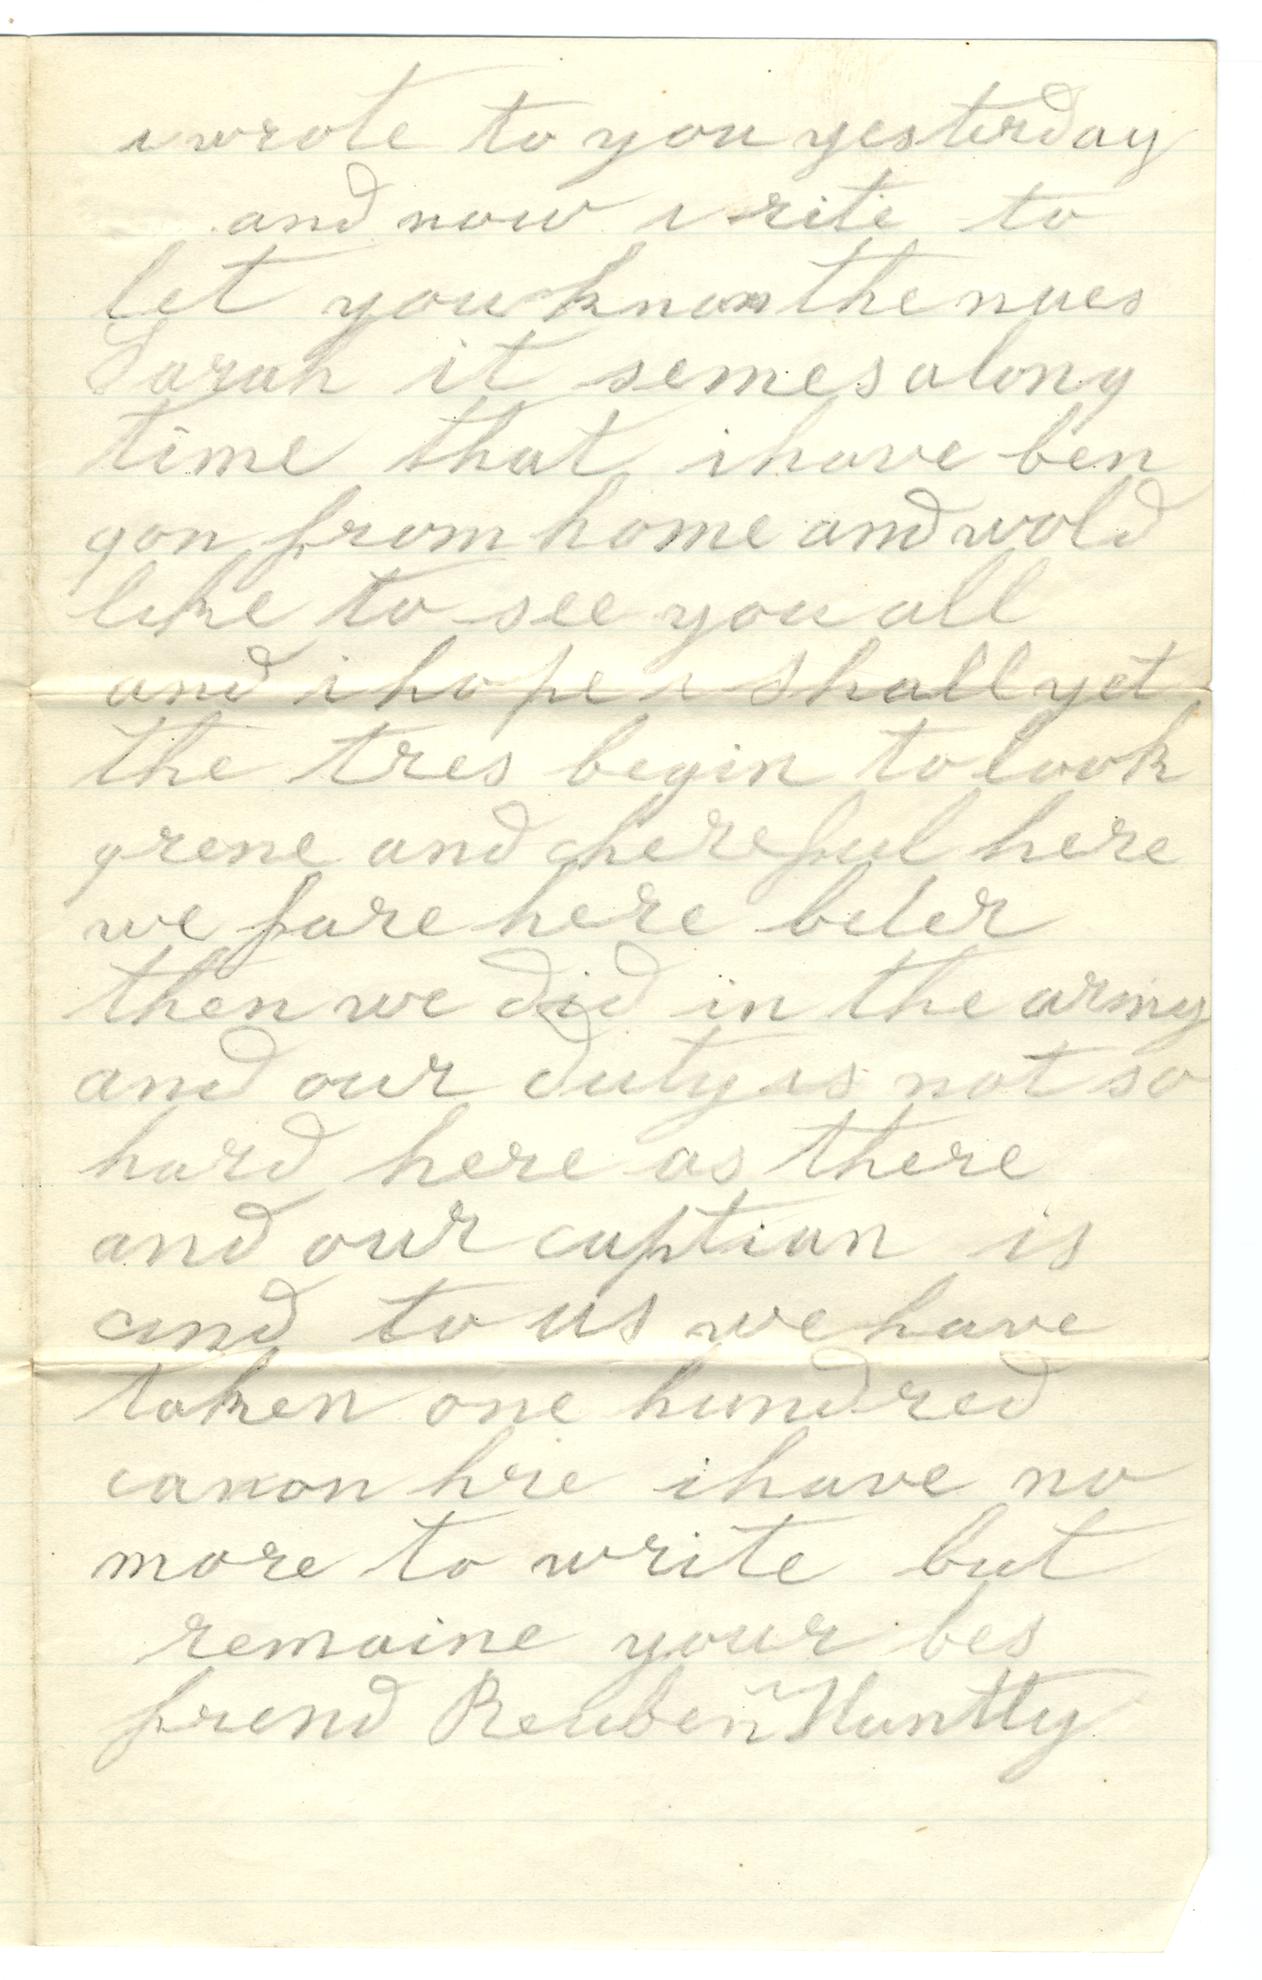 i wrote to you yesterday
and now i rite to
let you know the nues
Sarah it semes a long
time that i have ben
gon from home and wold
like to see you all
and i hope i shall yet
the tres begin to look
grene and chereful here
we fare here beter
then we did in the army
and our duty is not so
hard here as there
and our captian is
cind to us we have
taken one hundred
canon hre i have no
more to write but
remaine your bes
frend Reuben Huntly